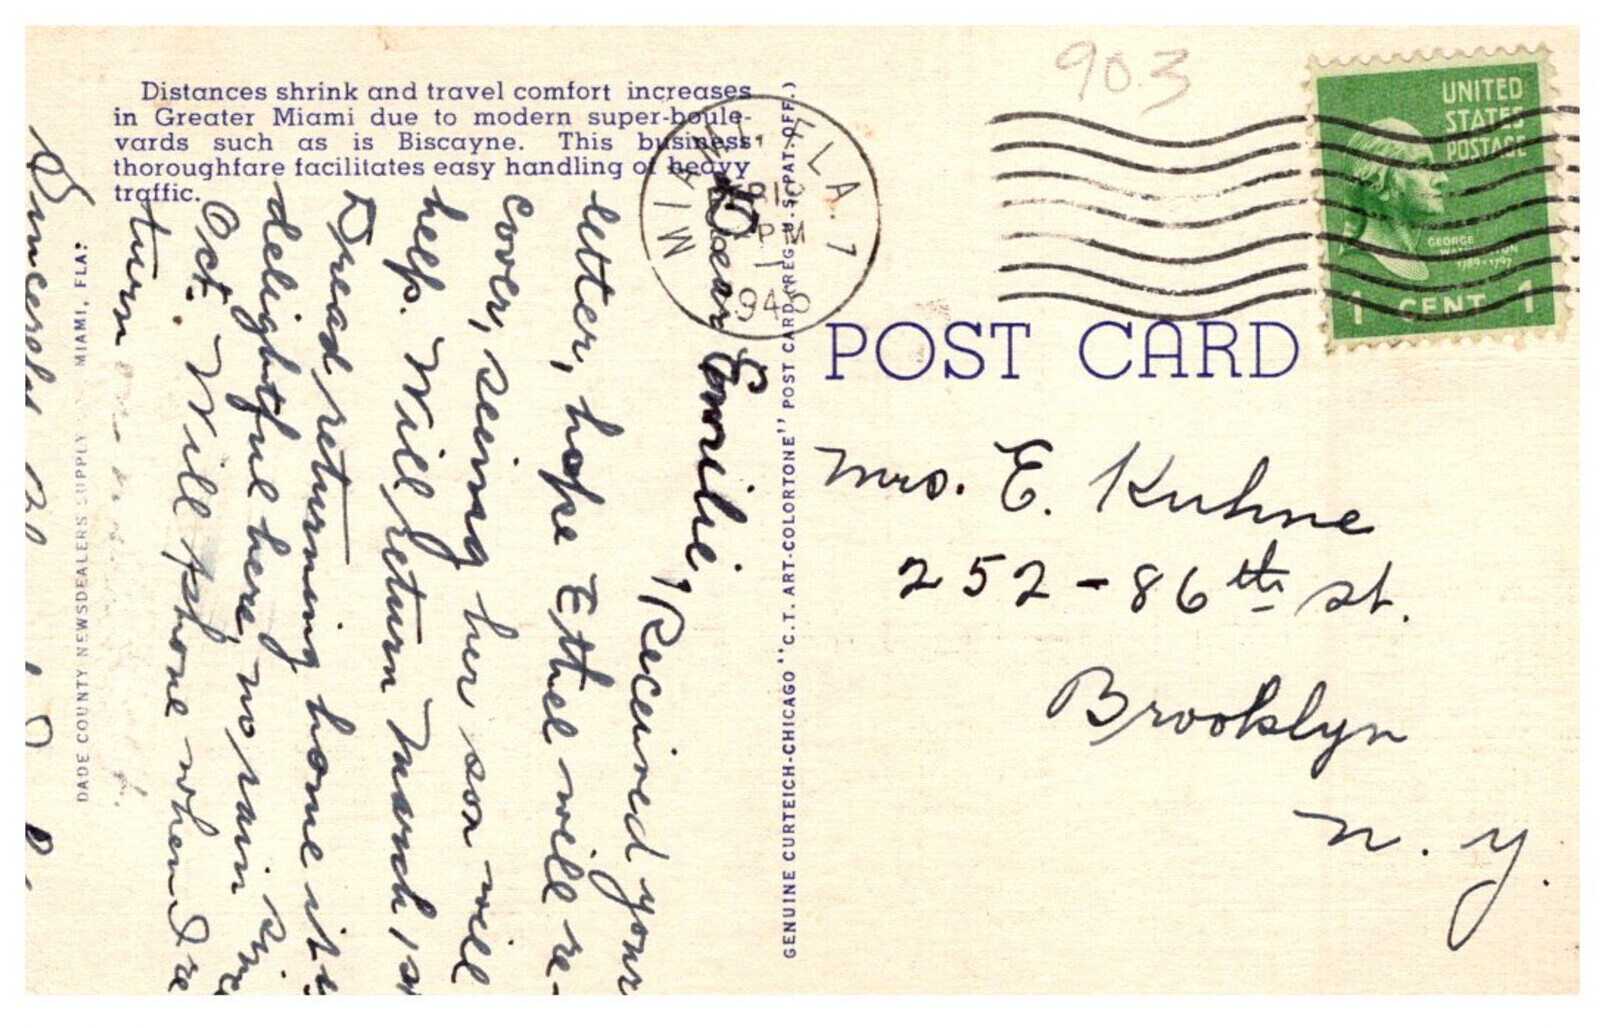 Distances shrink and travel comfort increases
in Greater Miami due to modern super-boule-
vards such as is Biscayne. This business
thoroughfare facilitates easy handling of heavy
traffic.
Dear Emilie,
Received your
letter, hope Ethel will re-
cover, seeing her son will
help. Will return March 1st
Dread returning home it's
delightful here, no rain since
Oct. Will phone when I re
turn
Sincerely
DADE COUNTY NEWSDEALERS SUPPLY MIAMI, FLA.
GENUINE CURTEICH-CHICAGO "C.T. ART-COLORTONE" POST CARD (REG. U.S. PAT. OFF.)
MIAMI FLA. 1
PM
194
903
UNITED
STATES
POSTAGE
GEORGE
WASHINGTON
1789-1797
1 CENT 1
POST CARD
Mrs. E. Kuhne
252-86th St.
Brooklyn
N. Y.